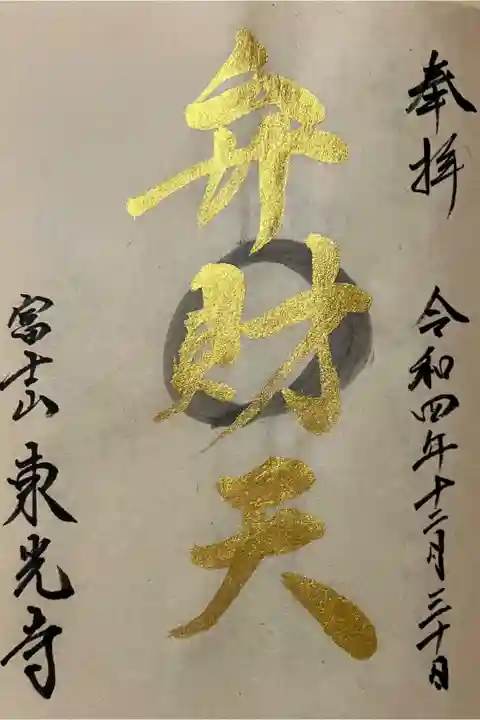 奉拝 令和四年十二月三十日
弁財天
富士山 東光寺